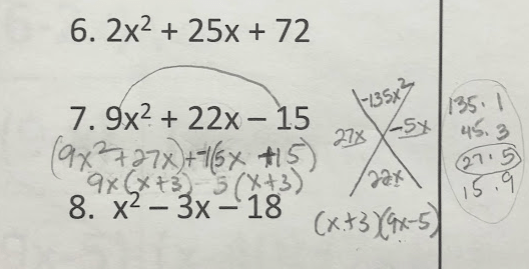 6. 2x² + 25x + 72
7. 9x² + 22x – 15
(9x²+27x)+-1(5x +15)
9x(x+3) - 5(x+3)
8. x² – 3x – 18
-135x²
27x
-5x
22x
(x+3)(9x-5)
135.1
45.3
27.5
15.9